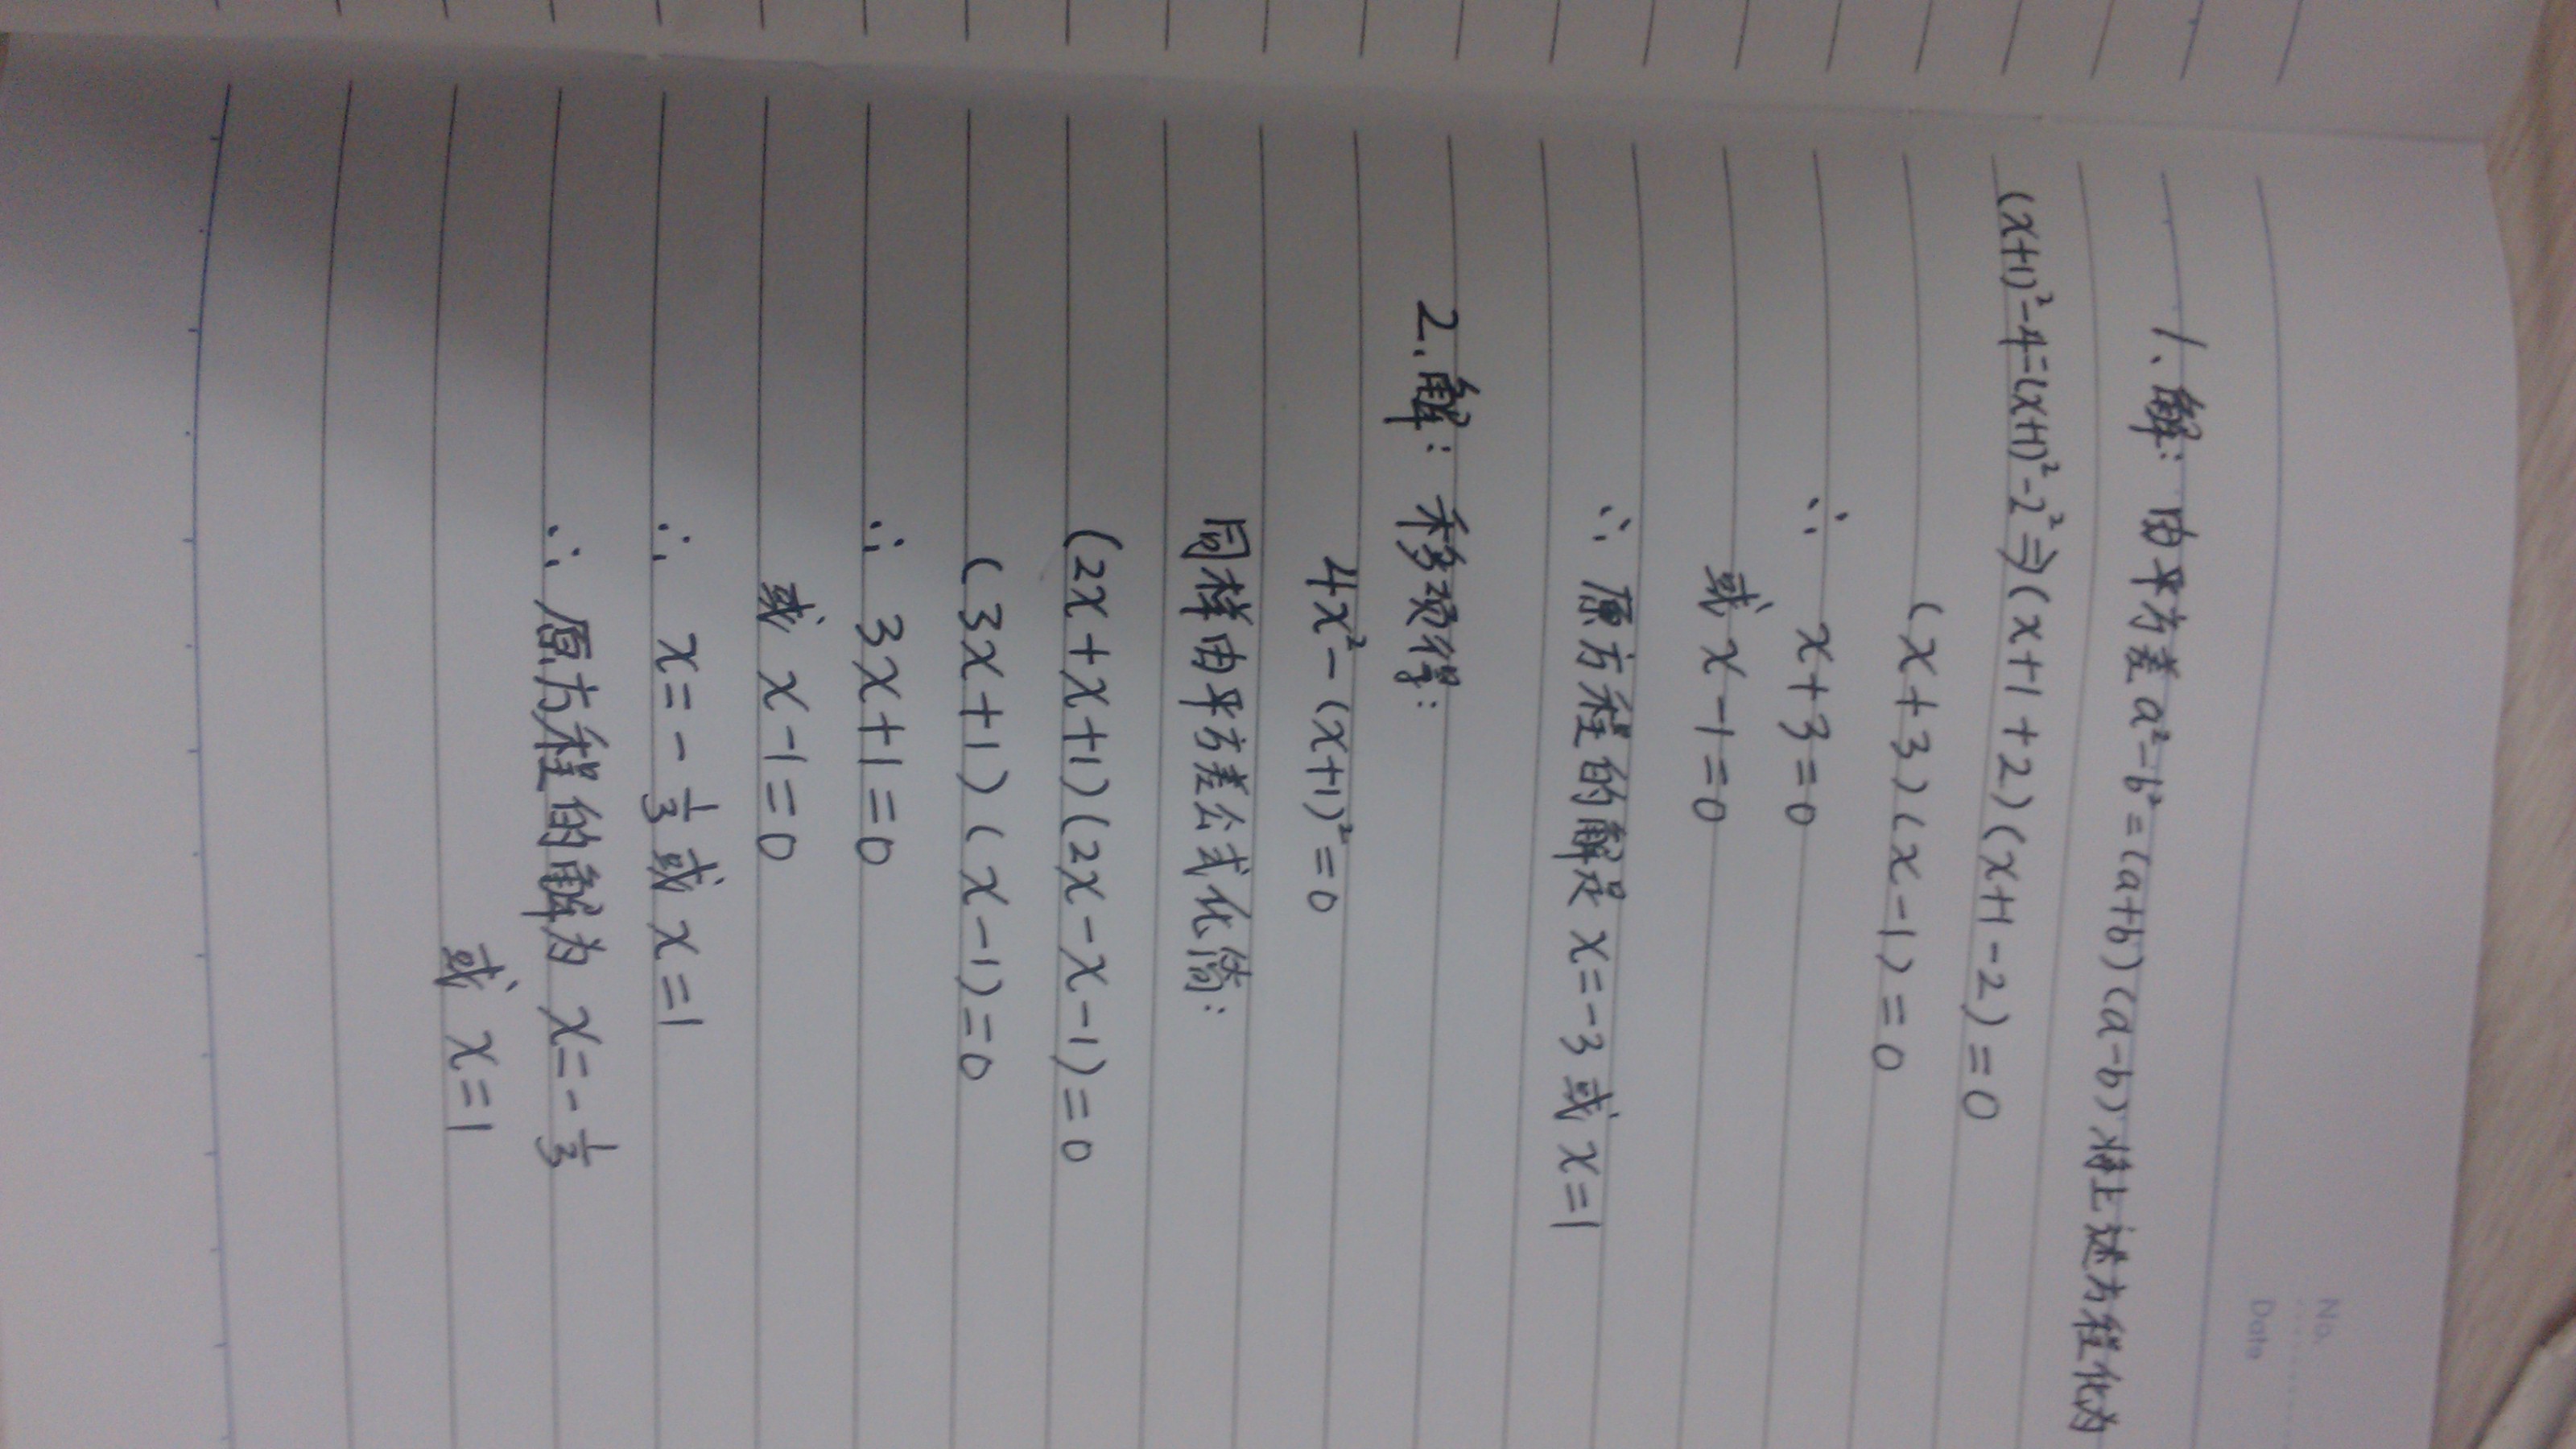 No.
Date
1、解：由平方差a²-b²=(a+b)(a-b)将上述方程化为
(x+1)²-4=(x+1)²-2²⇒(x+1+2)(x+1-2)=0
(x+3)(x-1)=0
∴ x+3=0
或 x-1=0
∴ 原方程的解是 x=-3 或 x=1
2.解：移项得：
4x²-(x+1)²=0
同样由平方差公式化简：
(2x+x+1)(2x-x-1)=0
(3x+1)(x-1)=0
∴ 3x+1=0
或 x-1=0
∴ x=-1/3 或 x=1
∴ 原方程的解为 x=-1/3
或 x=1